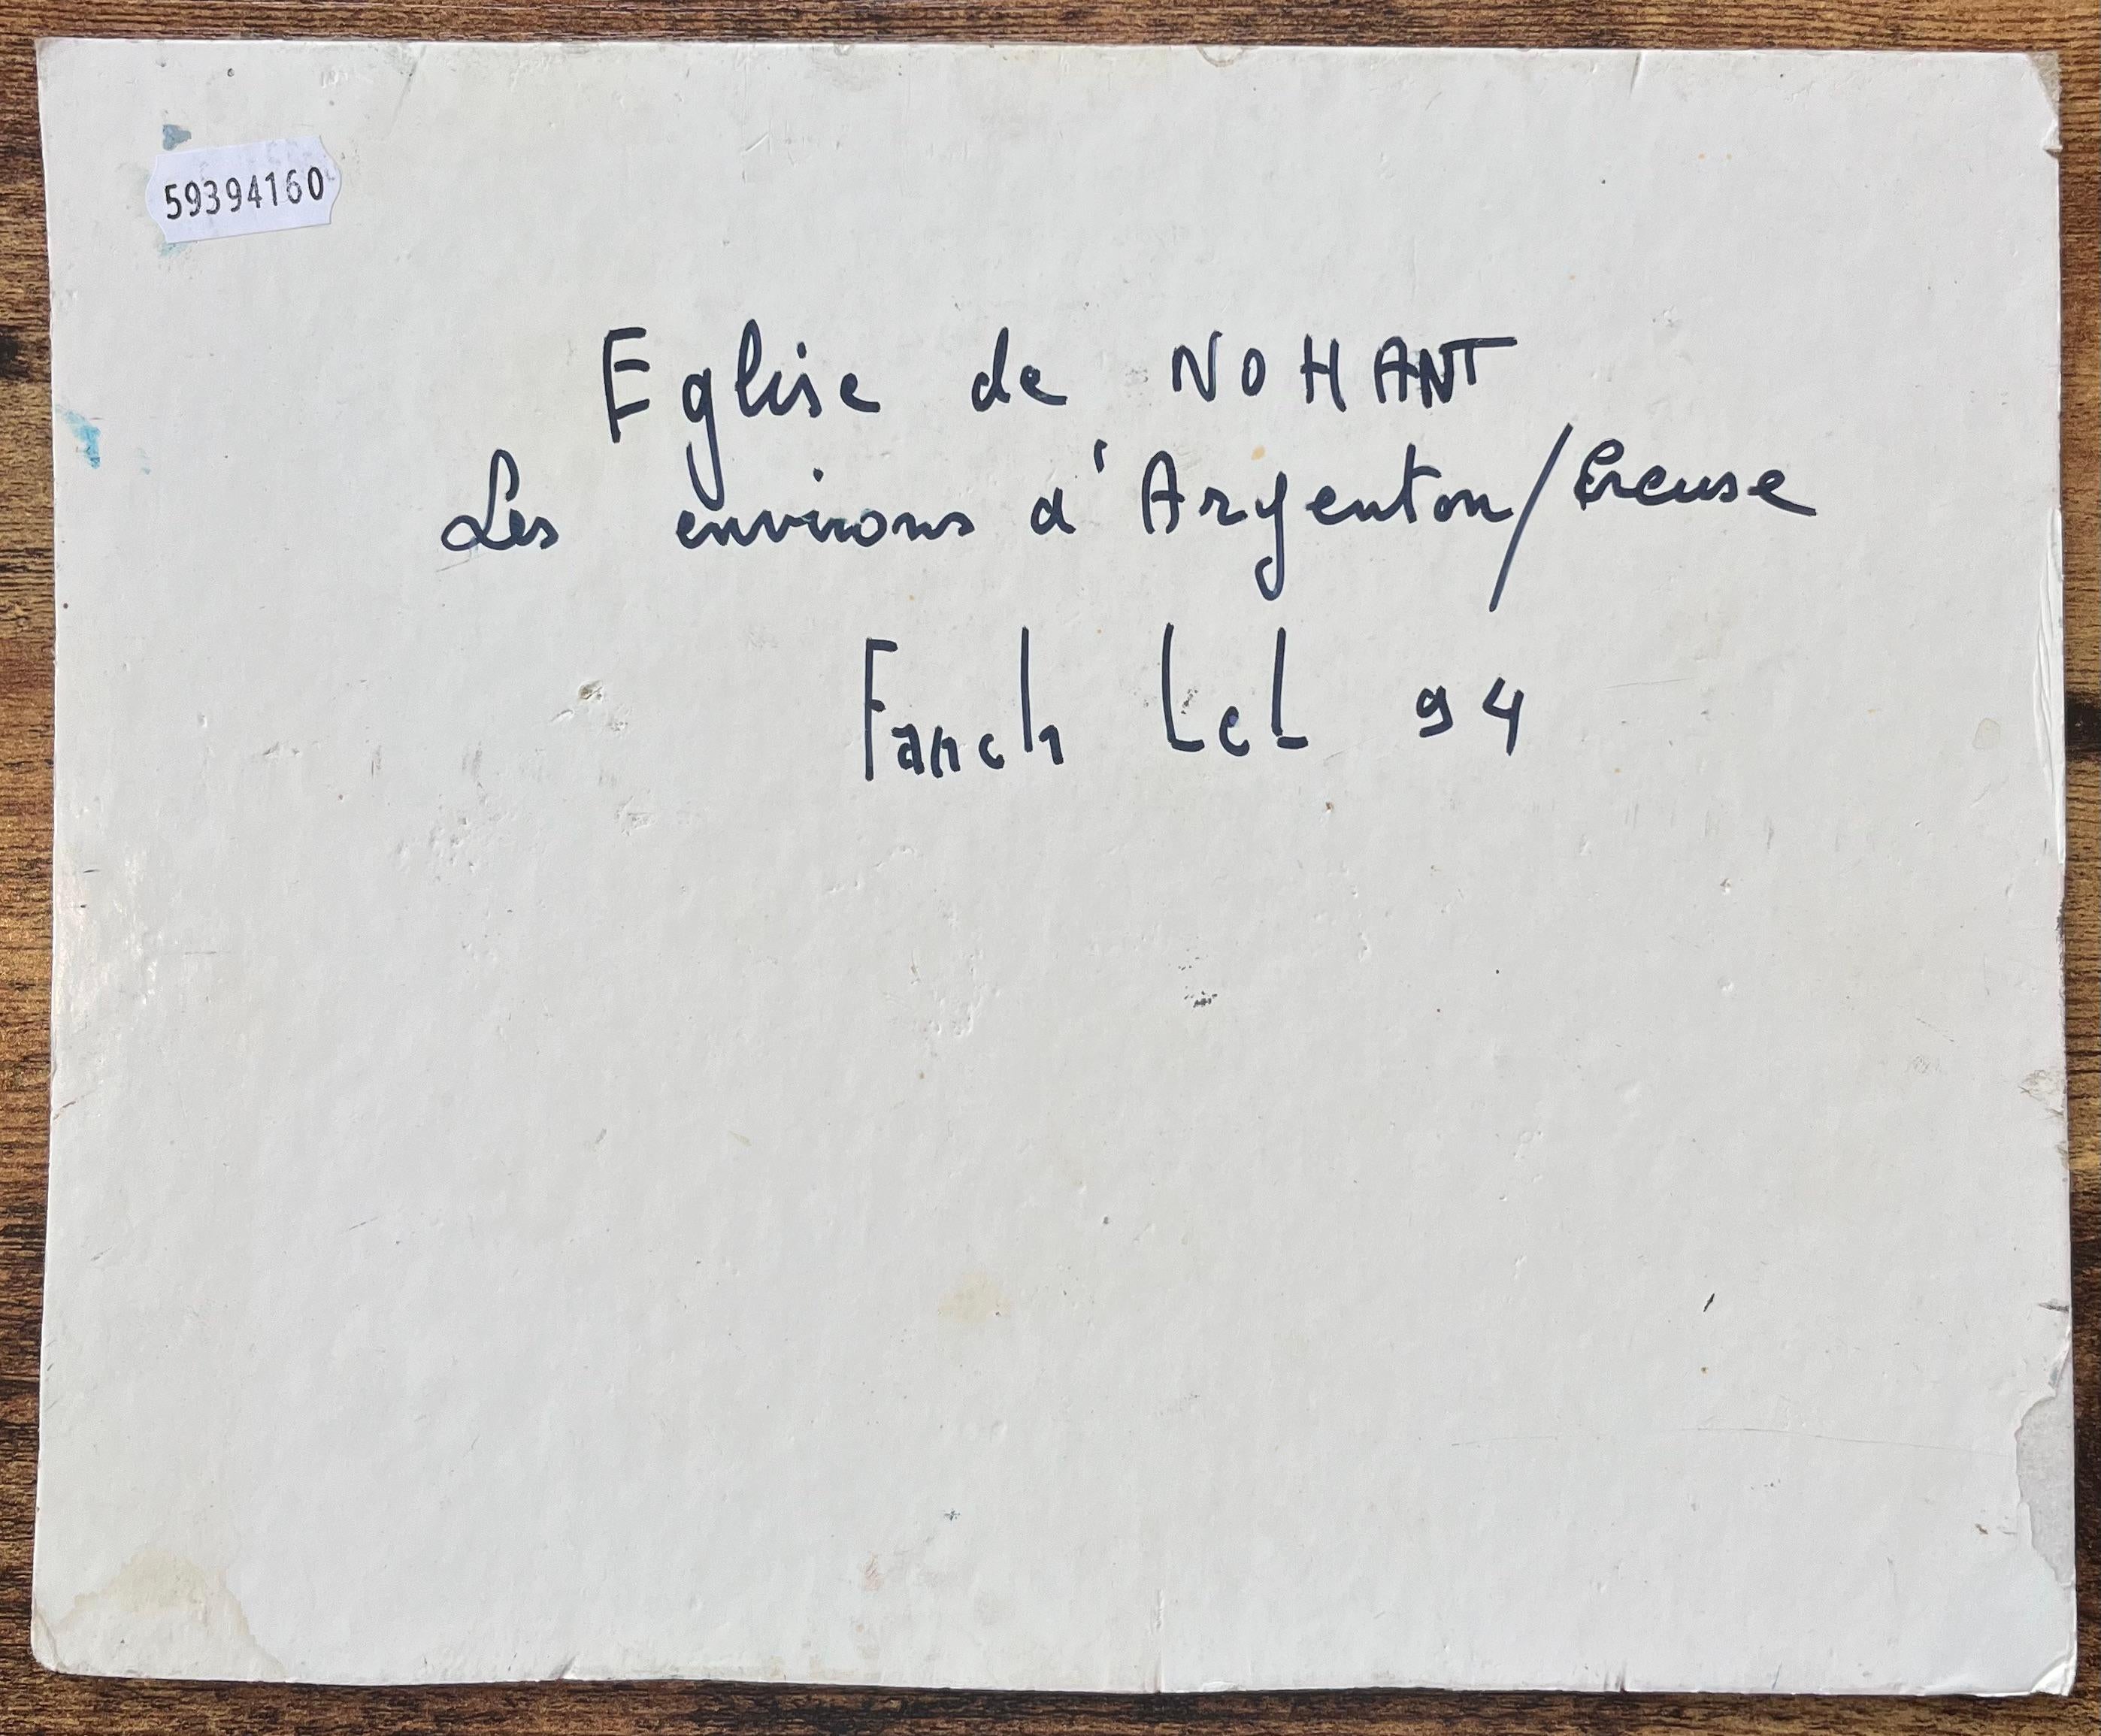 59394160
Eglise de NOHANT
Les environs d'Argenton/Creuse
Fanch Lel 94